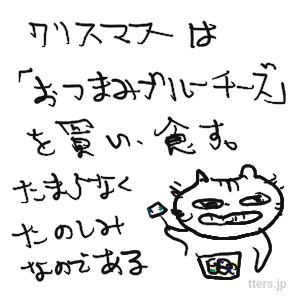 クリスマスは
「おつまみブルーチーズ」
を買い、食す。
たまらなく
たのしみ
なのである
tters.jp